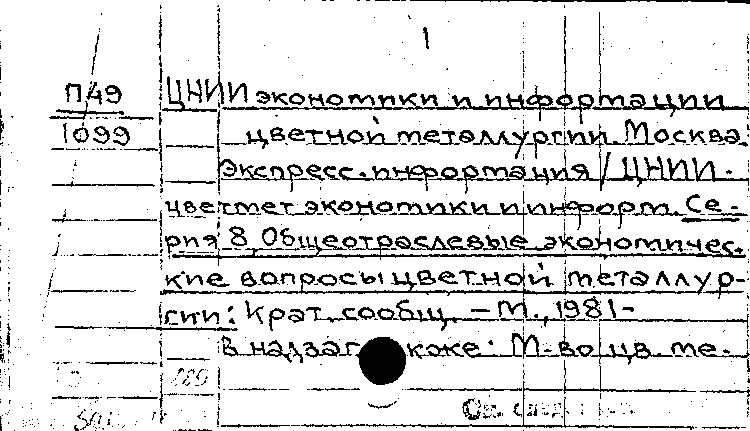 1
П49 ЦНИИ экономики и информации
1099 цветной металлургии. Москва.
Экспресс-информация / ЦНИИ-
цветмет экономики и информ. Се-
рия 8, Общеотраслевые экономичес-
кие вопросы цветной металлур-
гии: Крат. сообщ. – М., 1981-
В надзаг. также: М-во цв. ме-
См. след.